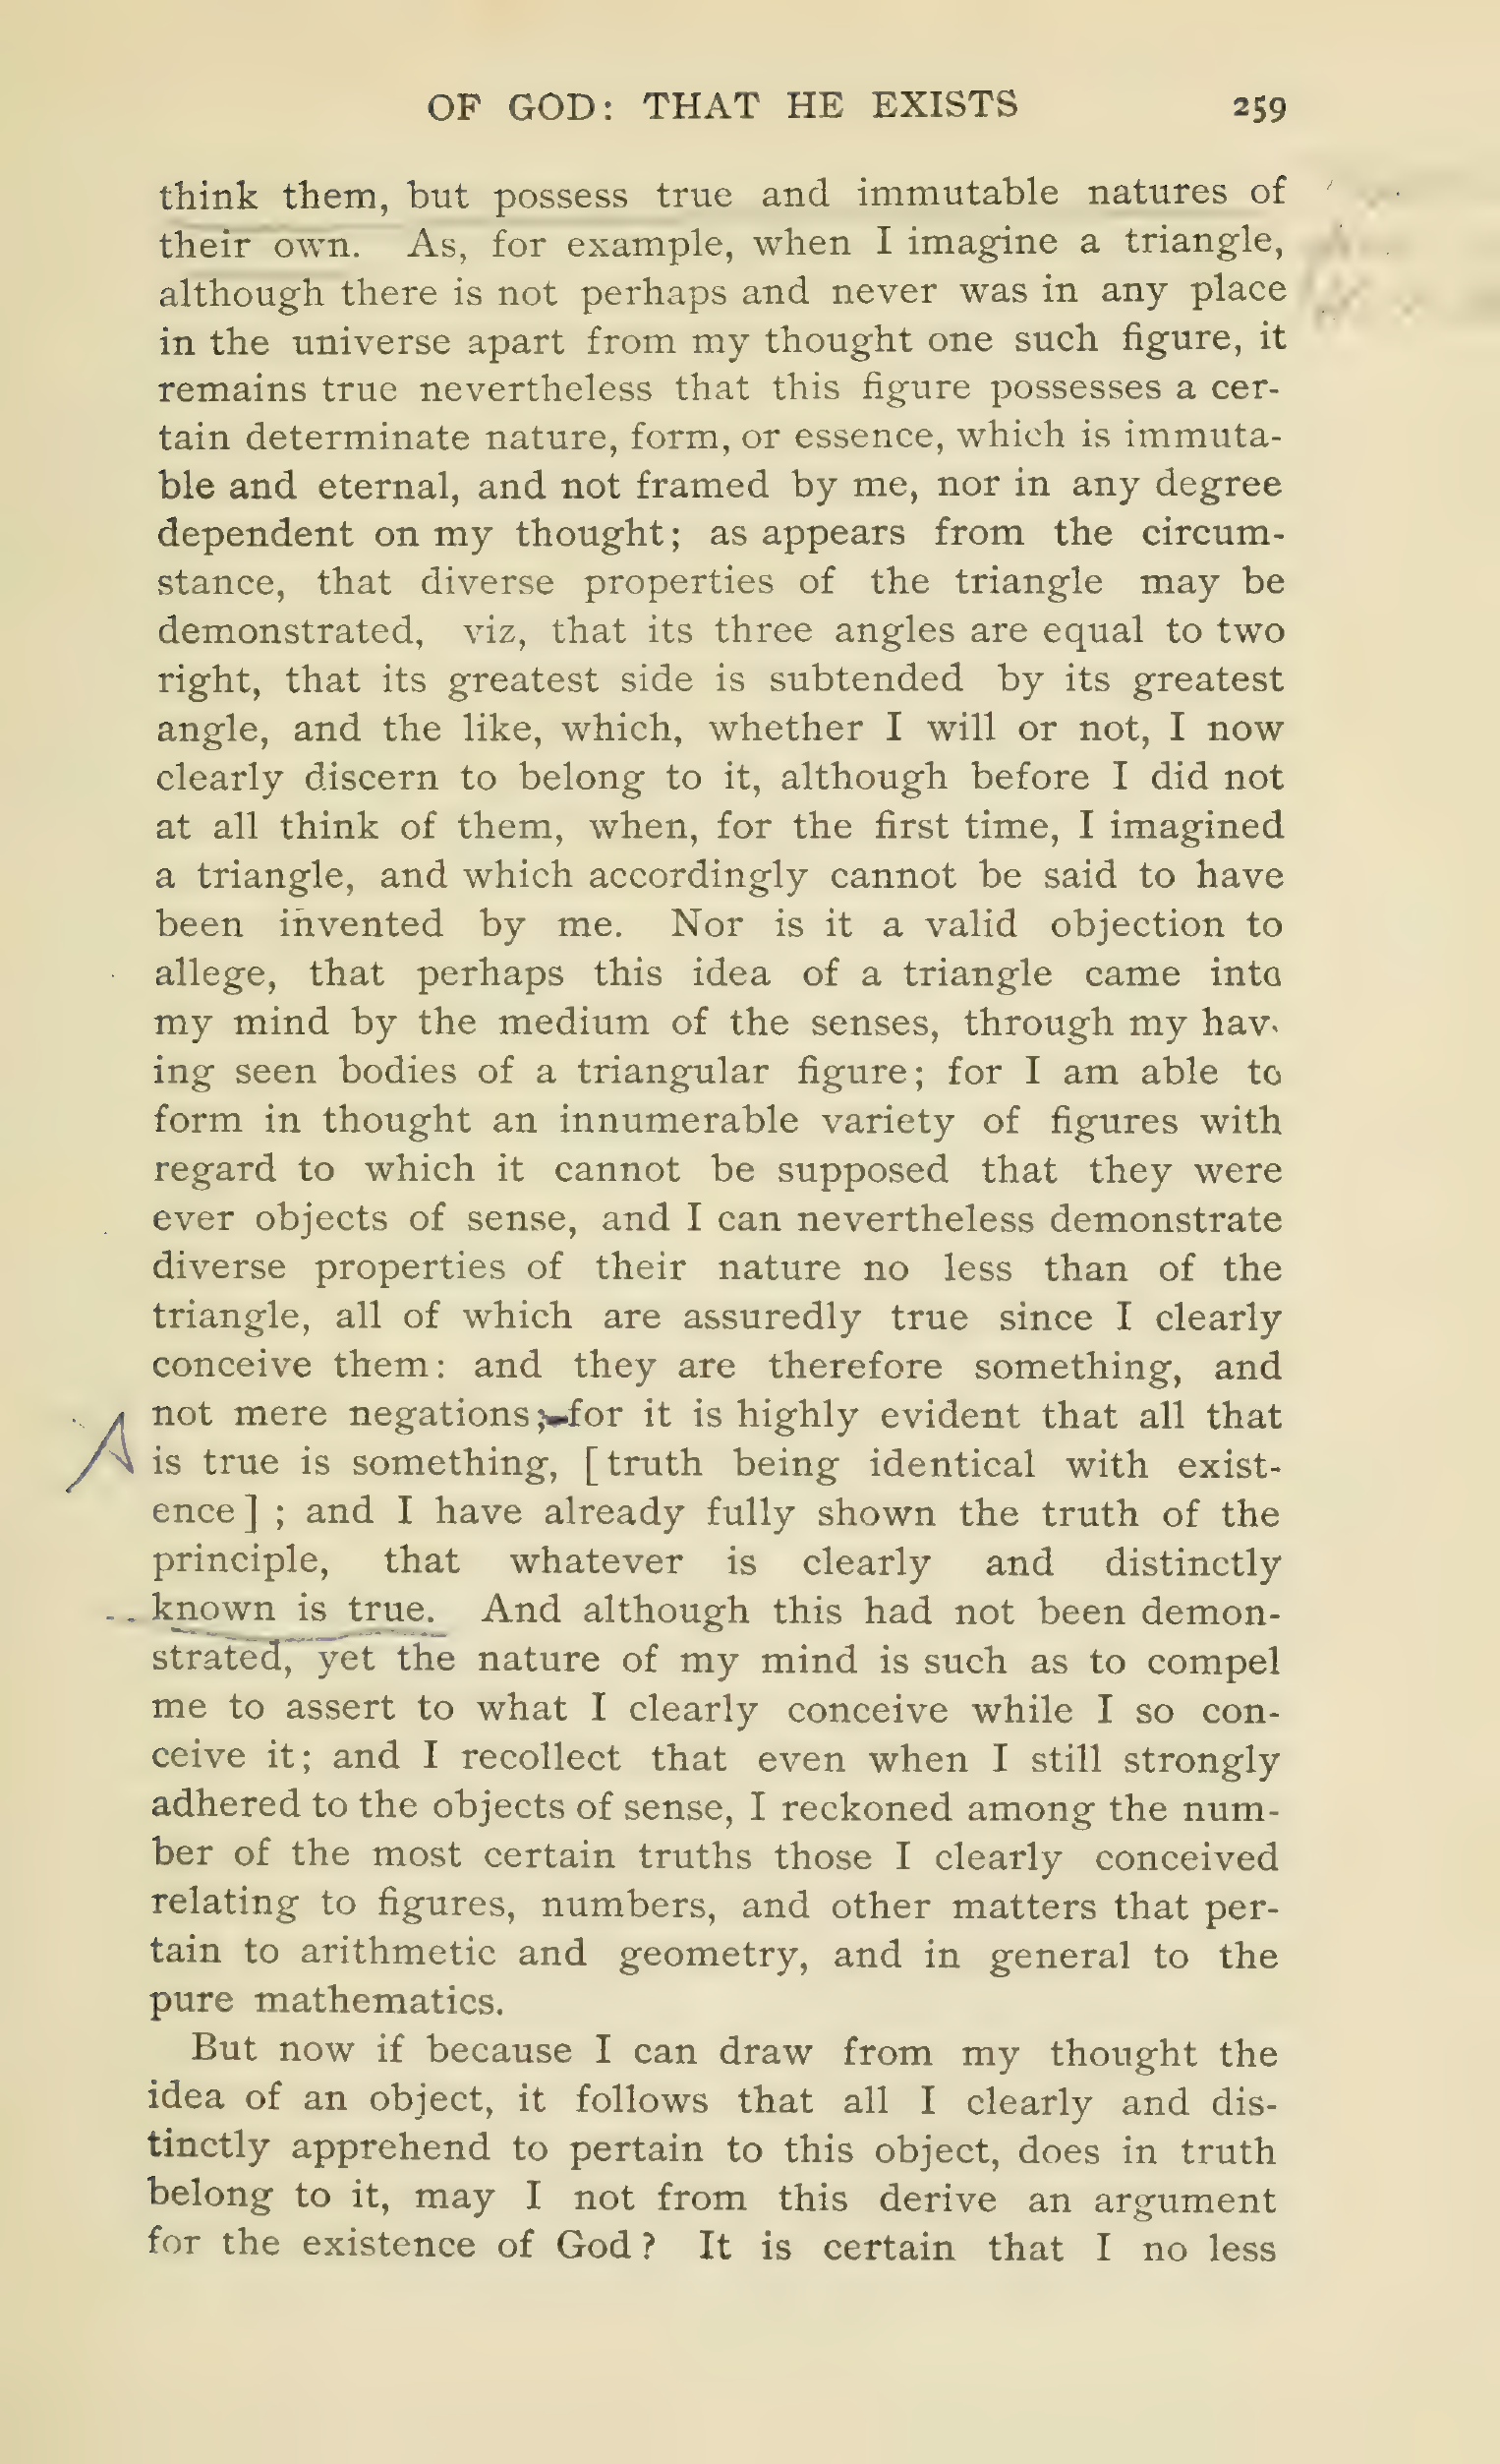 OF GOD: THAT HE EXISTS 259
think them, but possess true and immutable natures of
their own. As, for example, when I imagine a triangle,
although there is not perhaps and never was in any place
in the universe apart from my thought one such figure, it
remains true nevertheless that this figure possesses a cer-
tain determinate nature, form, or essence, which is immuta-
ble and eternal, and not framed by me, nor in any degree
dependent on my thought; as appears from the circum-
stance, that diverse properties of the triangle may be
demonstrated, viz, that its three angles are equal to two
right, that its greatest side is subtended by its greatest
angle, and the like, which, whether I will or not, I now
clearly discern to belong to it, although before I did not
at all think of them, when, for the first time, I imagined
a triangle, and which accordingly cannot be said to have
been invented by me. Nor is it a valid objection to
allege, that perhaps this idea of a triangle came into
my mind by the medium of the senses, through my hav-
ing seen bodies of a triangular figure; for I am able to
form in thought an innumerable variety of figures with
regard to which it cannot be supposed that they were
ever objects of sense, and I can nevertheless demonstrate
diverse properties of their nature no less than of the
triangle, all of which are assuredly true since I clearly
conceive them: and they are therefore something, and
not mere negations; for it is highly evident that all that
is true is something, [truth being identical with exist-
ence]; and I have already fully shown the truth of the
principle, that whatever is clearly and distinctly
known is true. And although this had not been demon-
strated, yet the nature of my mind is such as to compel
me to assert to what I clearly conceive while I so con-
ceive it; and I recollect that even when I still strongly
adhered to the objects of sense, I reckoned among the num-
ber of the most certain truths those I clearly conceived
relating to figures, numbers, and other matters that per-
tain to arithmetic and geometry, and in general to the
pure mathematics.
But now if because I can draw from my thought the
idea of an object, it follows that all I clearly and dis-
tinctly apprehend to pertain to this object, does in truth
belong to it, may I not from this derive an argument
for the existence of God? It is certain that I no less